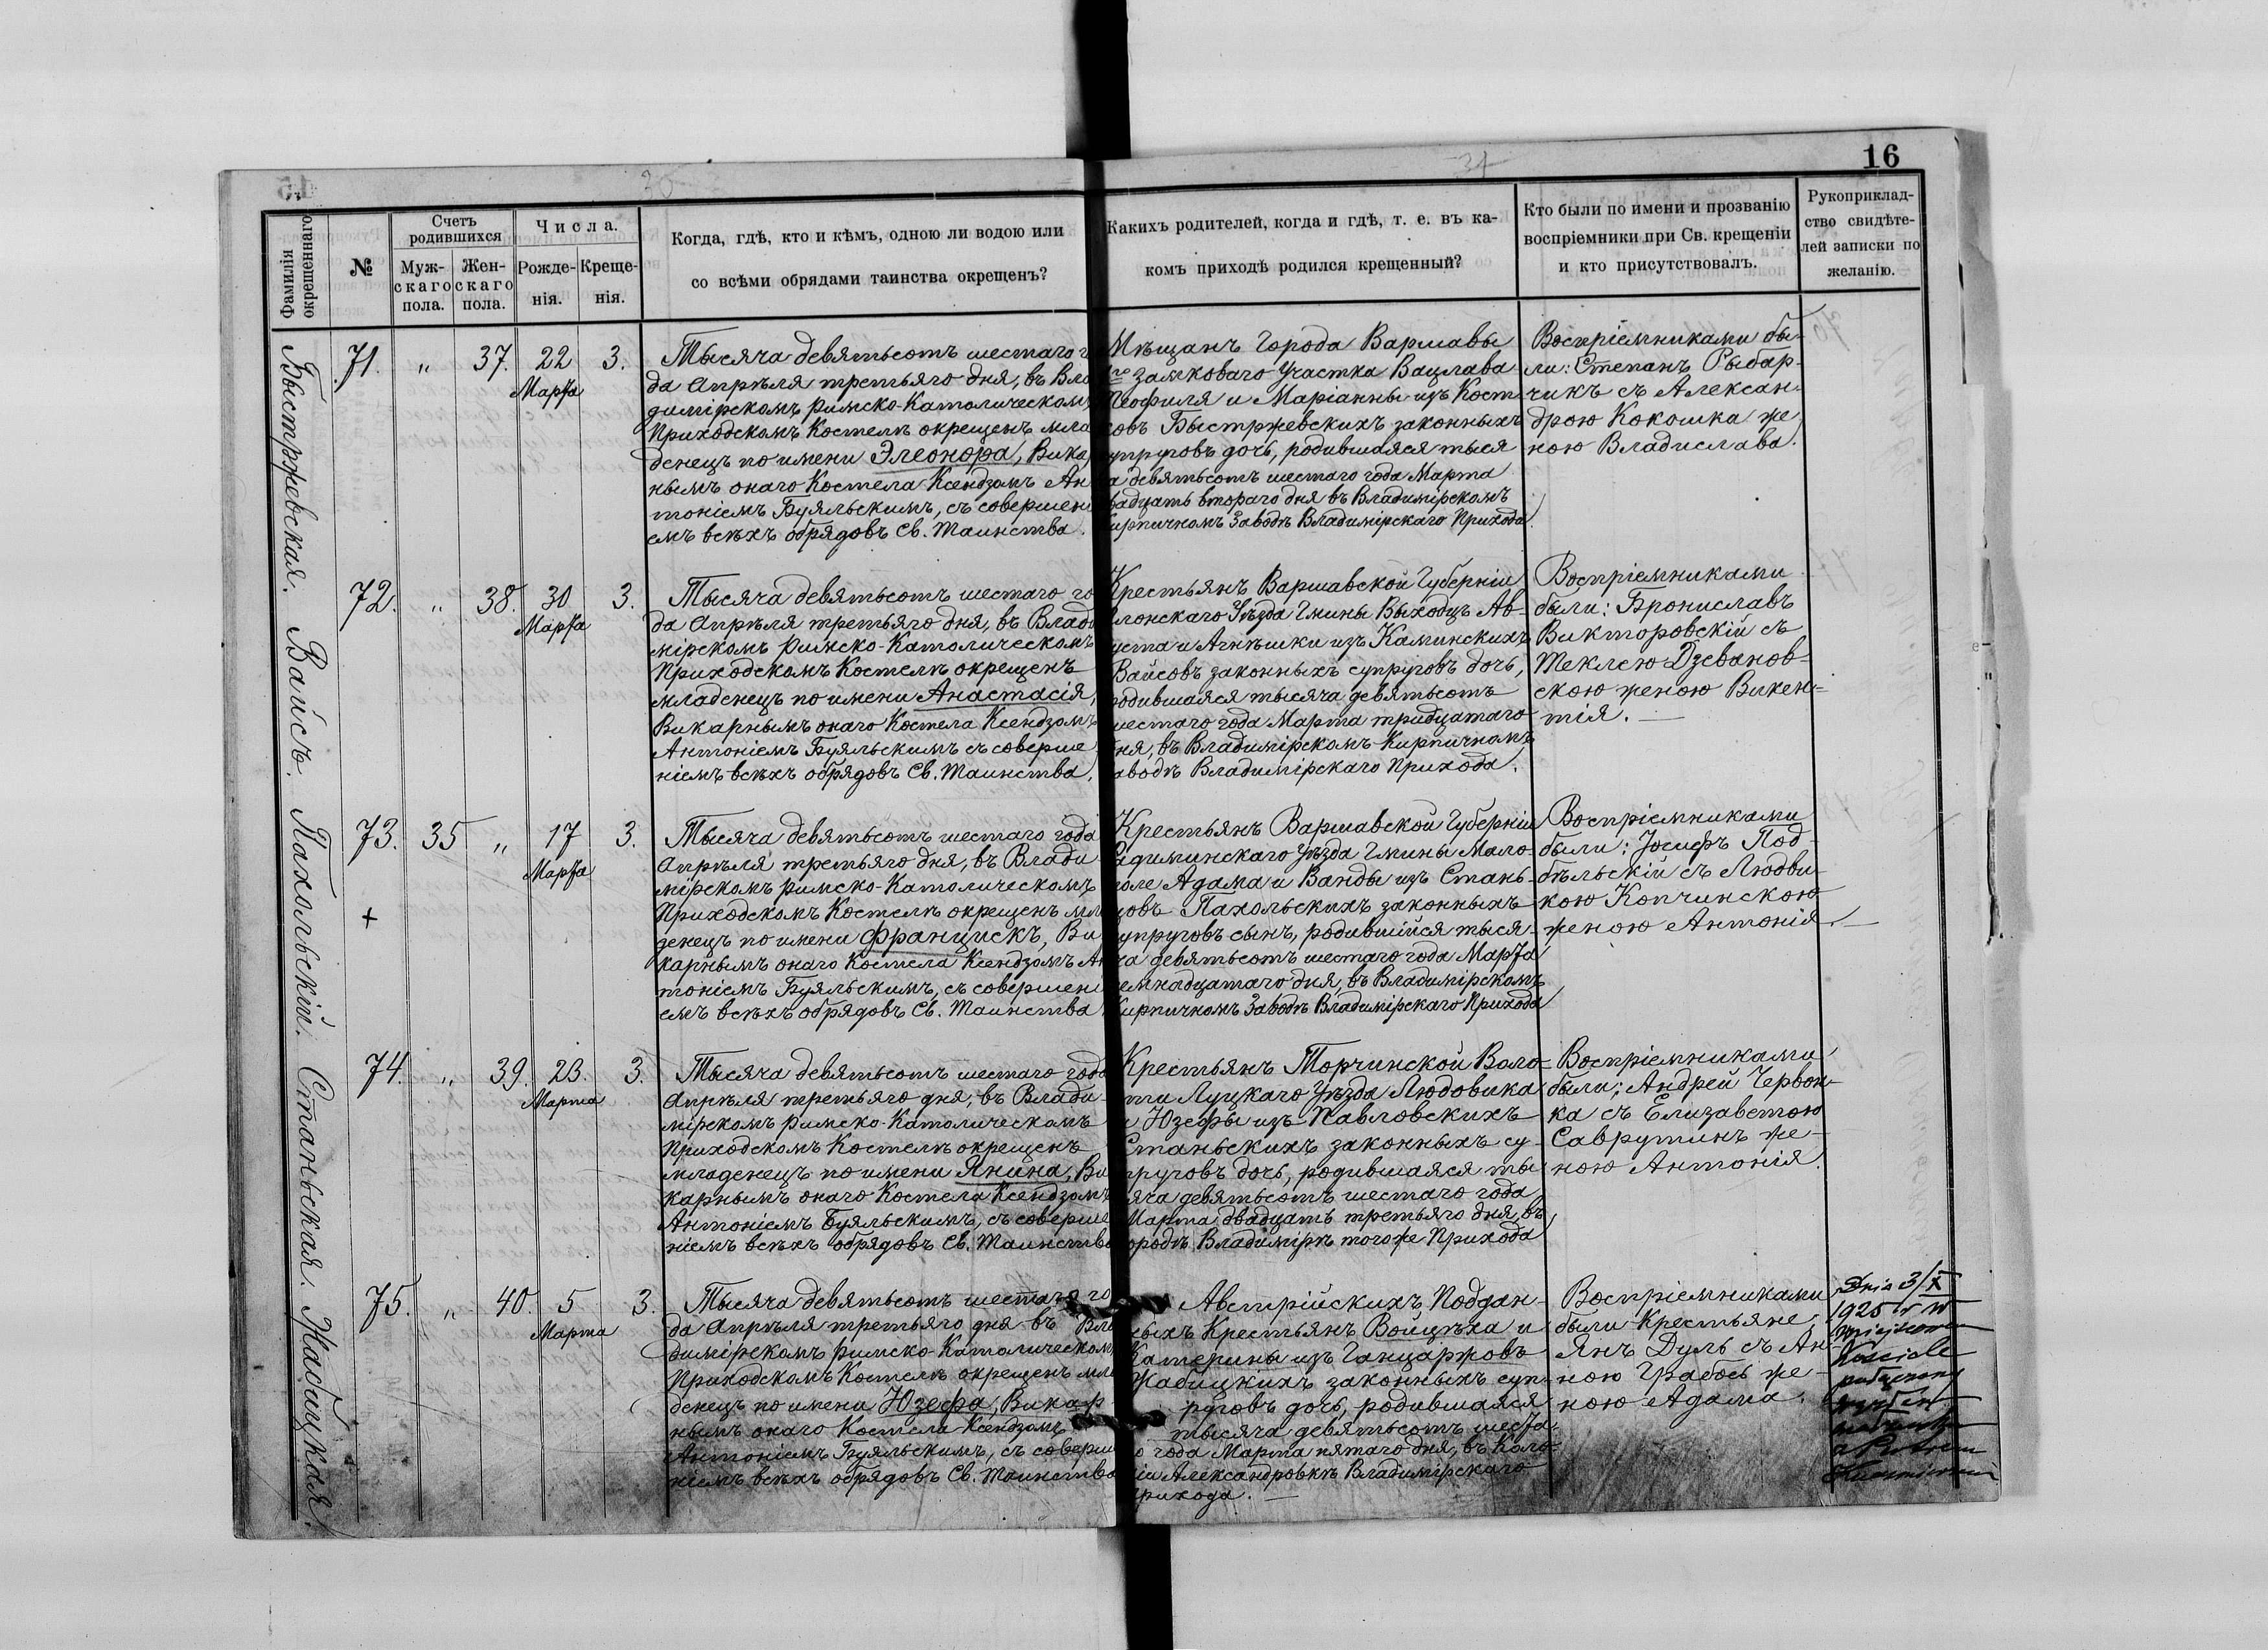 16
Фамилія окрещеннаго
№
Счетъ родившихся
Муж-
скаго
пола.
Жен-
скаго
пола.
Числа.
Рожде-
нія.
Креще-
нія.
Когда, гдѣ, кто и кѣмъ, одною ли водою или
со всѣми обрядами таинства окрещенъ?
Какихъ родителей, когда и гдѣ, т. е. въ ка-
комъ приходѣ родился крещенный?
Кто были по имени и прозванію
воспріемники при Св. крещеніи
и кто присутствовалъ.
Рукоприклад-
ство свидѣте-
лей записки по
желанію.
Быстржевская.
71. " 37. 22 Марта 3.
Тысяча девятьсотъ шестаго г
да Апрѣля третьяго дня, въ Вла
димірскомъ Римско-Католическомъ
Приходскомъ Костелѣ окрещенъ мла
денецъ по имени Элеонора, Вика
нымъ онаго Костела Ксендзомъ Ан
тоніемъ Буяльскимъ, съ совершен
емъ всѣхъ обрядовъ Св. Таинства.
Мѣщанъ Города Варшавы
го замковаго Участка Вацлава
Теофиля и Маріанны изъ Кост
ковъ Быстржевскихъ законныхъ
упруговъ дочь, родившаяся тыся
а девятьсотъ шестаго года Марта
вадцать втораго дня въ Владимірскомъ
ирпичномъ Заводѣ Владимірскаго Прихода.
Воспріемниками бы-
ли: Степанъ Рыбар-
чикъ съ Алексан-
дрою Кокошка же
ною Владислава.
Вайсъ.
72. " 38. 30 Марта 3.
Тысяча девятьсотъ шестаго го
да Апрѣля третьяго дня, въ Влади
мірскомъ Римско-Католическомъ
Приходскомъ Костелѣ окрещенъ
младенецъ по имени Анастасія,
Викарнымъ онаго Костела Ксендзомъ
Антоніемъ Буяльскимъ съ соверше
ніемъ всѣхъ обрядовъ Св. Таинства.
Крестьянъ Варшавской Губерніи
лонскаго Уѣзда Гмины Выходцъ Ав-
уста и Агнѣшки изъ Каминскихъ
Вайсовъ законныхъ супруговъ дочь,
родившаяся тысяча девятьсотъ
шестаго года Марта тридцатаго
дня, въ Владимірскомъ Кирпичномъ
аводѣ Владимірскаго Прихода.
Воспріемниками
были: Брониславъ
Викторовскій съ
Теклею Дзеванов-
скою женою Викен-
тія. —
Пахольскій.
73. 35 " 17 Марта 3.
+
Тысяча девятьсотъ шестаго года
Апрѣля третьяго дня, въ Влади
мірскомъ Римско-Католическомъ
Приходскомъ Костелѣ окрещенъ мл
денецъ по имени Францискъ, Ви
карнымъ онаго Костела Ксендзомъ Ан
тоніемъ Буяльскимъ, съ совершен
емъ всѣхъ обрядовъ Св. Таинства
Крестьянъ Варшавской Губерніи
адиминскаго Уѣзда Гмины Мало-
поле Адама и Ванды изъ Стань-
цовъ Пахольскихъ законныхъ
упруговъ сынъ, родившійся тыся-
ча девятьсотъ шестаго года Марта
емнадцатаго дня, въ Владимірскомъ
Кирпичномъ Заводѣ Владимірскаго Прихода
Воспріемниками
были: Іосифъ Под-
бѣльскій съ Людви-
кою Копчинскою
женою Антонія. —
Станьская.
74. " 39. 23. Марта 3.
Тысяча девятьсотъ шестаго года
Апрѣля третьяго дня, въ Влади-
мірскомъ Римско-Католическомъ
Приходскомъ Костелѣ окрещенъ
младенецъ по имени Янина, Ви
карнымъ онаго Костела Ксендзомъ
Антоніемъ Буяльскимъ, съ соверше
ніемъ всѣхъ обрядовъ Св. Таинства
Крестьянъ Торчинской Воло-
сти Луцкаго Уѣзда Людовика
и Юзефы изъ Павловскихъ
Станьскихъ законныхъ су-
пруговъ дочь, родившаяся ты
яча девятьсотъ шестаго года
Марта двадцать третьяго дня, въ
ородѣ Владимірѣ тогоже Прихода
Воспріемниками
были: Андрей Червон-
ка съ Елизаветою
Саврутинъ же-
ною Антонія.
Жабицкая.
75. " 40. 5 Марта 3.
Тысяча девятьсотъ шестаго го
да Апрѣля третьяго дня въ Вла
димірскомъ Римско-Католическом
Приходскомъ Костелѣ окрещенъ мла
денецъ по имени Юзефа, Викар-
нымъ онаго Костела Ксендзомъ
Антоніемъ Буяльскимъ, съ соверш
ніемъ всѣхъ обрядовъ Св. Таинства
Австрійскихъ Поддан-
ныхъ Крестьянъ Войцѣха и
Катерины изъ Ганцаржовъ
Жабицкихъ законныхъ суп-
руговъ дочь, родившаяся
тысяча девятьсотъ шеста
о года Марта пятаго дня, въ Коло-
ніи Александровкѣ Владимірскаго
рихода. —
Воспріемниками
были Крестьяне:
Янъ Дуль съ Ан-
ною Грабось же-
ною Адама.
Dnia 3/X
1925 r w
miejscowem
Kościele